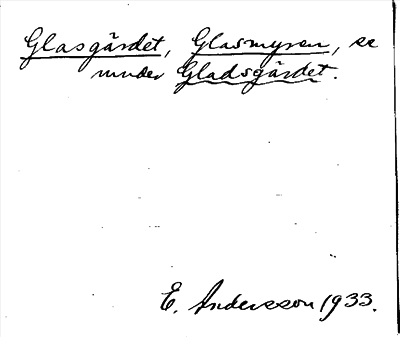 Glasgärdet, Glasmyran, se
under Gladsgärdet.
E. Andersson 1933.